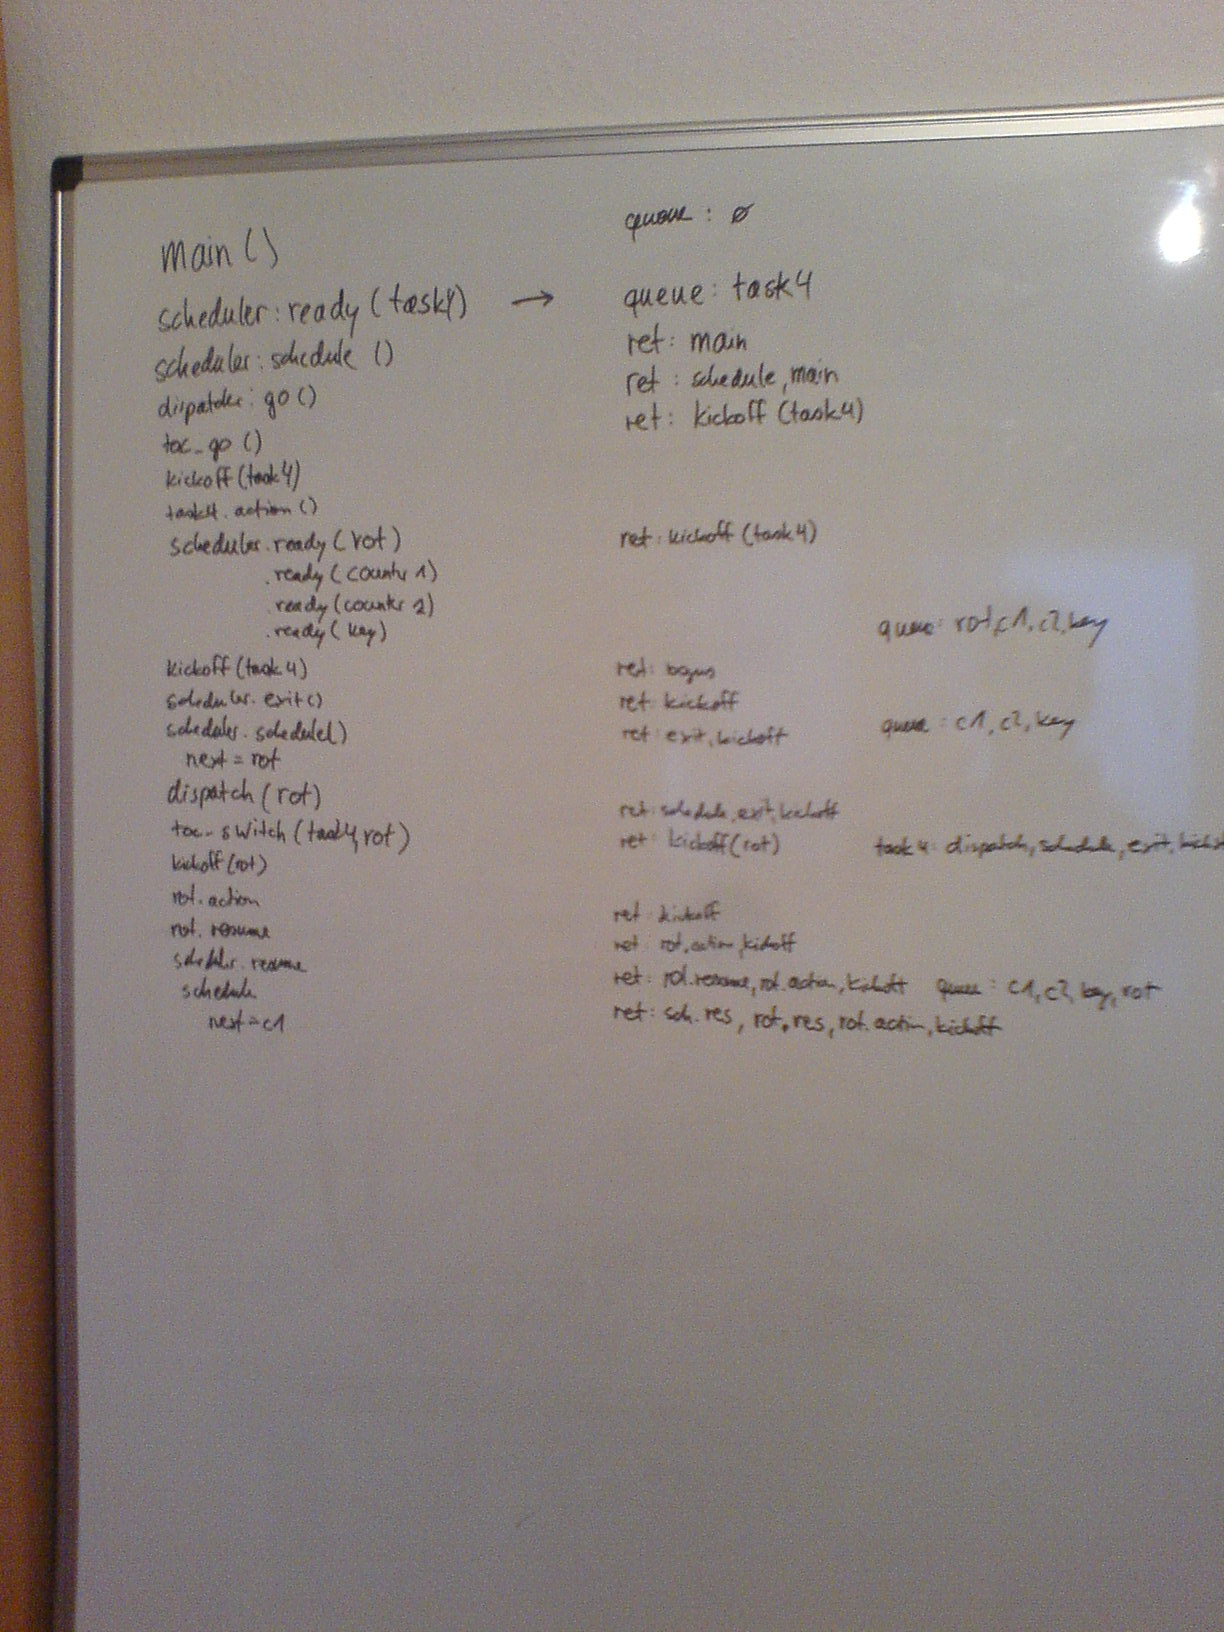 queue : ø
main ()
scheduler : ready (task4) → queue : task4
scheduler : schedule () ret : main
dispatcher : go () ret : schedule, main
toc_go () ret : kickoff (task4)
kickoff (task4)
task4.action ()
scheduler.ready (rot) ret : kickoff (task4)
.ready (counter 1)
.ready (counter 2)
.ready (key) queue : rot, c1, c2, key
kickoff (task4) ret : bogus
scheduler.exit () ret : kickoff
scheduler.schedule() ret : exit, kickoff queue : c1, c2, key
next = rot
dispatch (rot) ret : schedule, exit, kickoff
toc_switch (task4, rot) ret : kickoff (rot) task4 : dispatch, schedule, exit,
kickoff (rot)
rot.action ret : kickoff
rot.resume ret : rot.action, kickoff
scheduler.resume ret : rot.resume, rot.action, kickoff queue : c1, c2, key, rot
schedule ret : sch.res, rot.res, rot.action, kickoff
next = c1